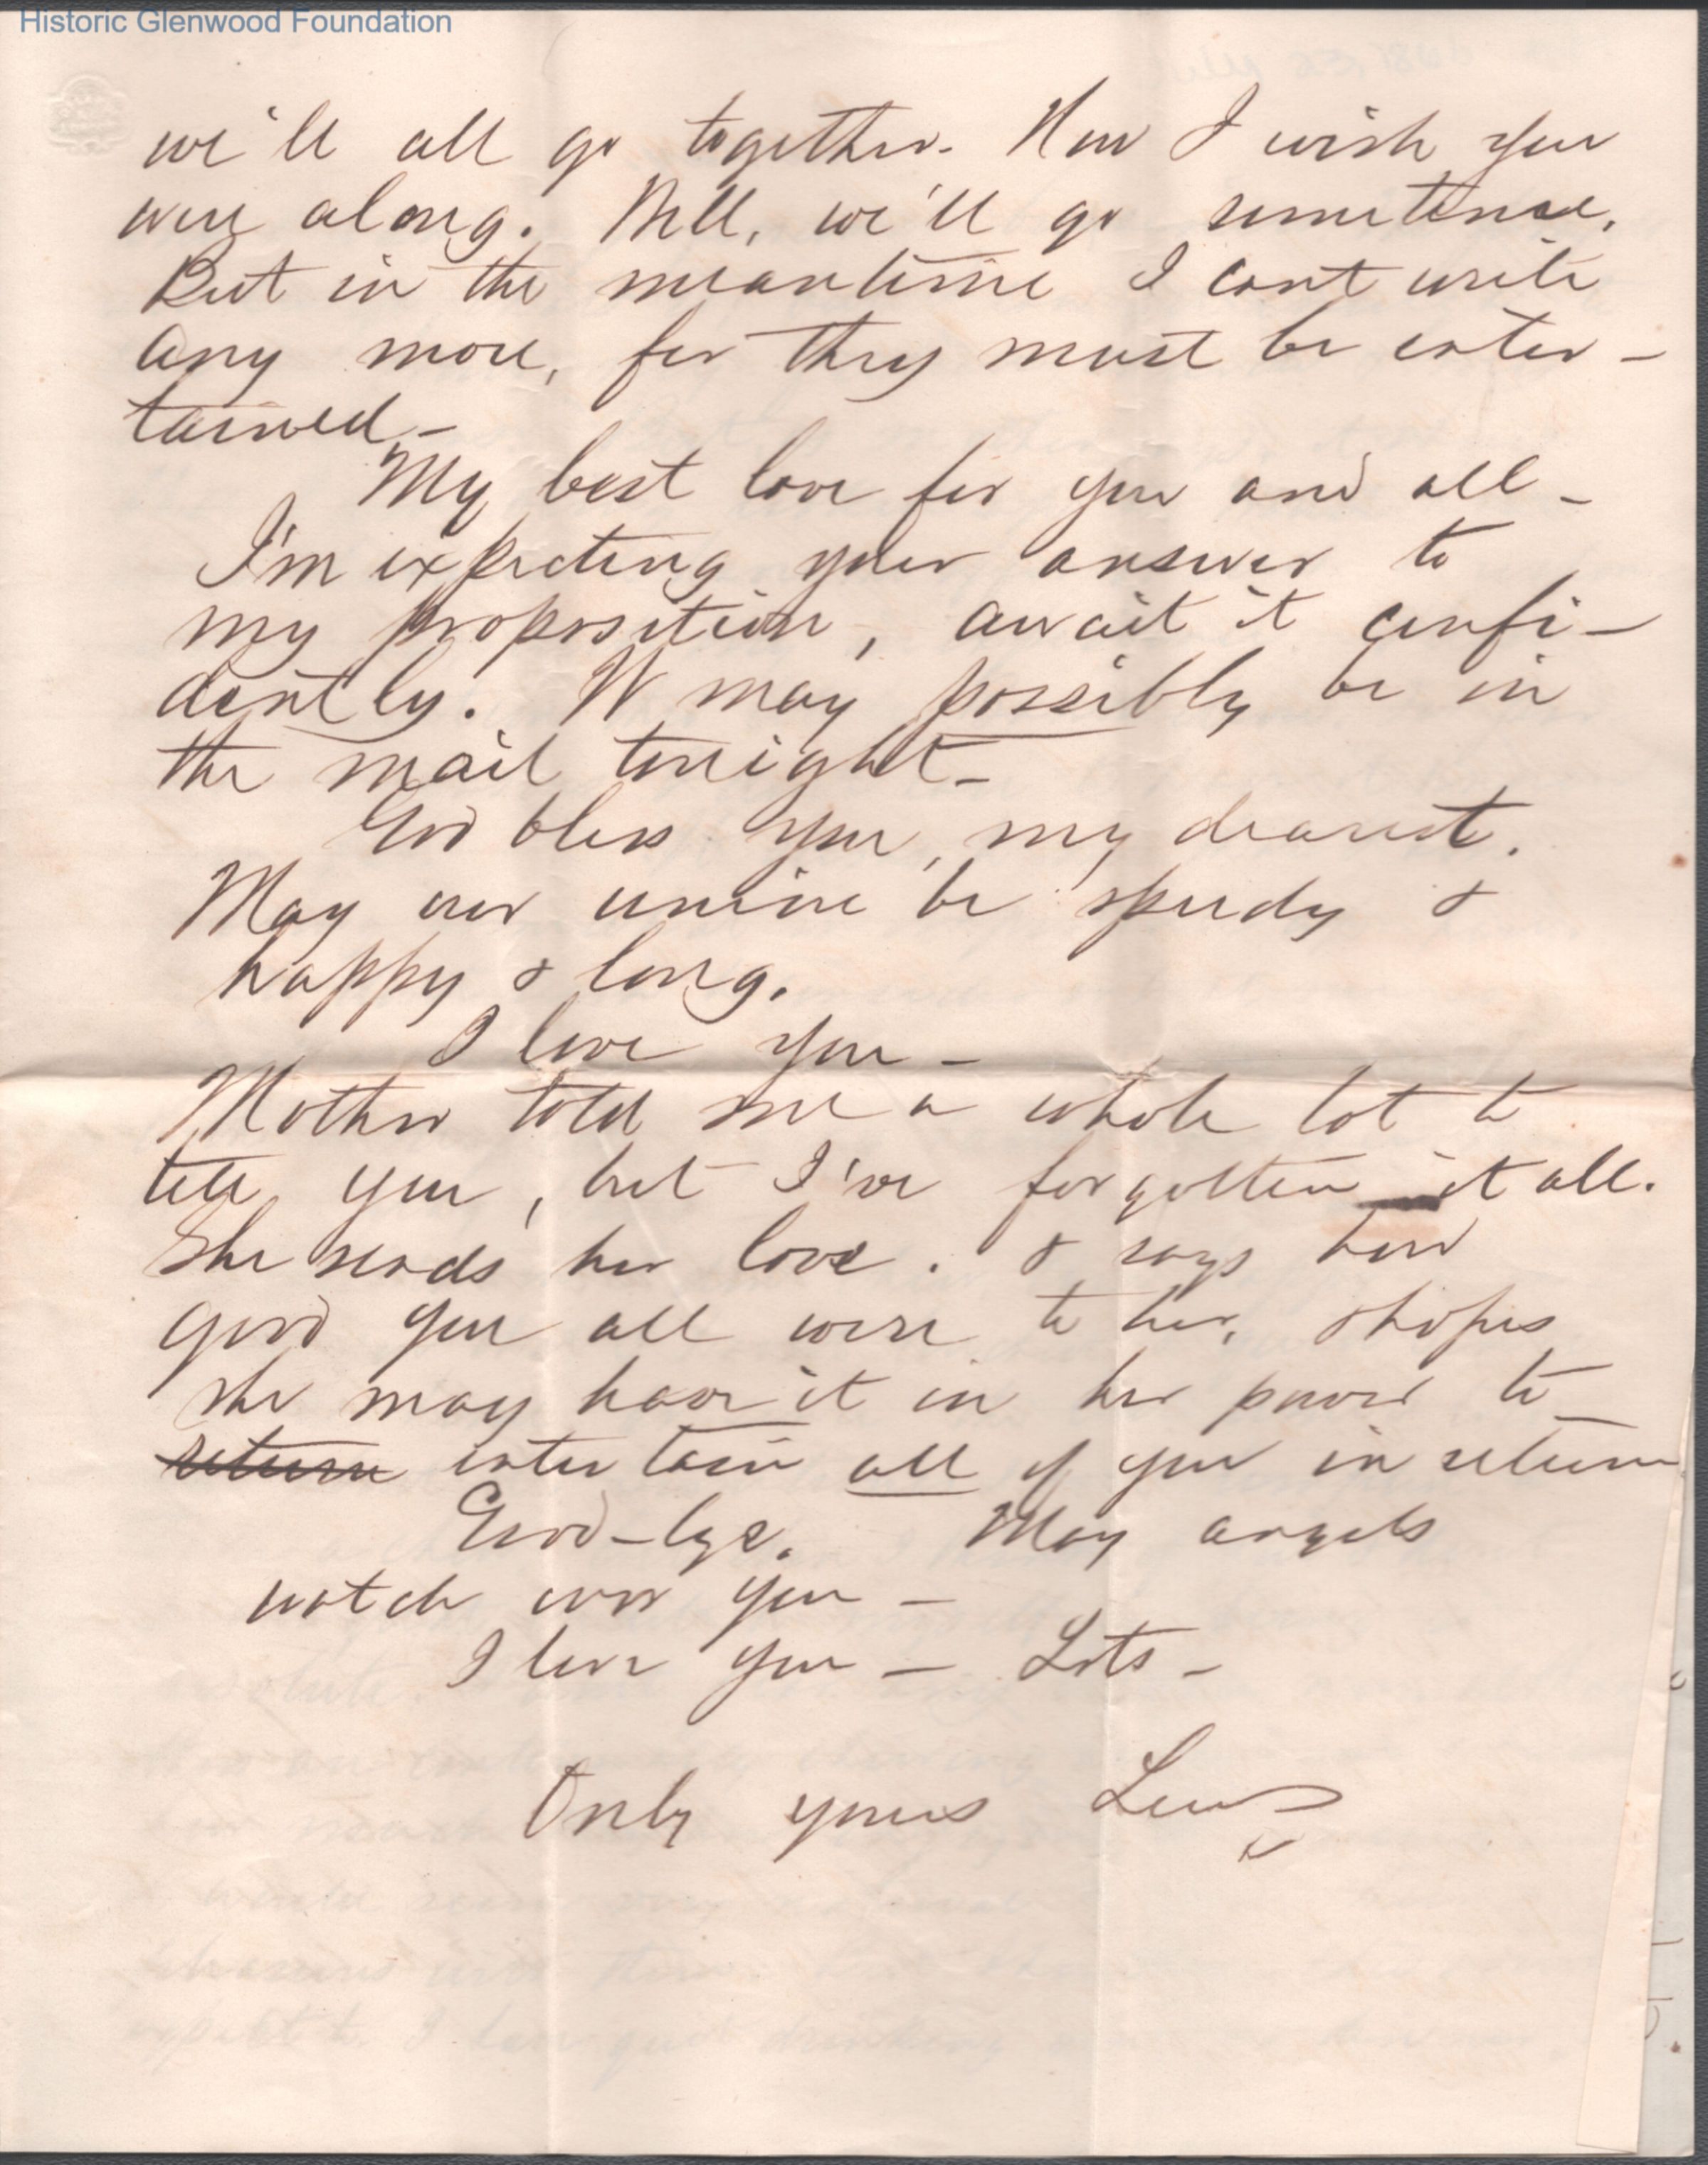 Historic Glenwood Foundation
we'll all go together. How I wish you
were along. Well, we'll go sometime.
But in the meantime I cant write
any more, for they must be enter-
tained -
My best love for you and all -
I'm expecting your answer to
my proposition, await it confi-
dently. It may possibly be in
the mail tonight -
God bless you, my dearest.
May our union be speedy &
happy & long.
I love you -
Mother told me a whole lot to
tell you, but I've forgotten it all.
She sends her love. & says how
good you all were to her, & hopes
she may have it in her power to
return entertain all of you in return
Good-bye. May angels
watch over you -
I love you - Lots -
Only yours Lew